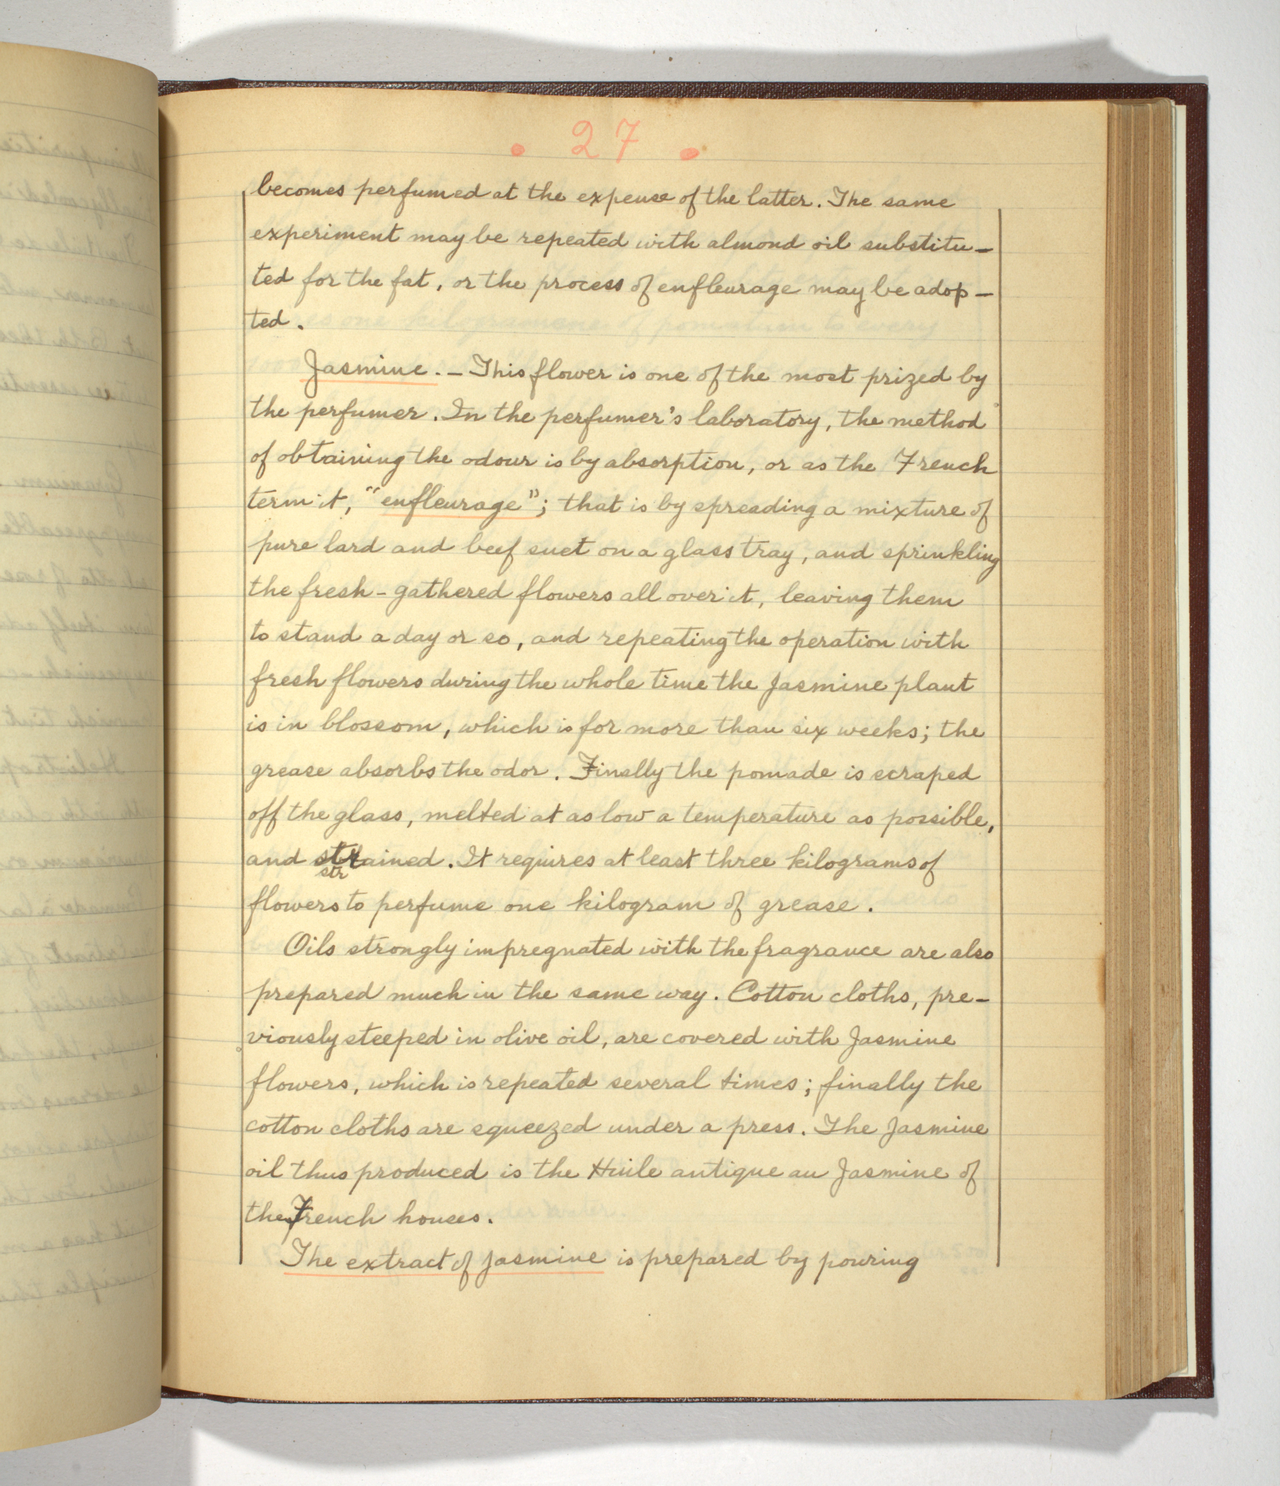 . 27 .
becomes perfumed at the expense of the latter. The same
experiment may be repeated with almond oil substitu-
ted for the fat, or the process of enfleurage may be adop-
ted.
Jasmine. - This flower is one of the most prized by
the perfumer. In the perfumer's laboratory, the method
of obtaining the odour is by absorption, or as the French
term it, "enfleurage"; that is by spreading a mixture of
pure lard and beef suet on a glass tray, and sprinkling
the fresh-gathered flowers all over it, leaving them
to stand a day or so, and repeating the operation with
fresh flowers during the whole time the Jasmine plant
is in blossom, which is for more than six weeks; the
grease absorbs the odor. Finally the pomade is scraped
off the glass, melted at as low a temperature as possible,
and strained. It requires at least three kilograms of
str
flowers to perfume one kilogram of grease.
Oils strongly impregnated with the fragrance are also
prepared much in the same way. Cotton cloths, pre-
viously steeped in olive oil, are covered with Jasmine
flowers, which is repeated several times; finally the
cotton cloths are squeezed under a press. The Jasmine
oil thus produced is the Huile antique au Jasmine of
the French houses.
The extract of Jasmine is prepared by pouring